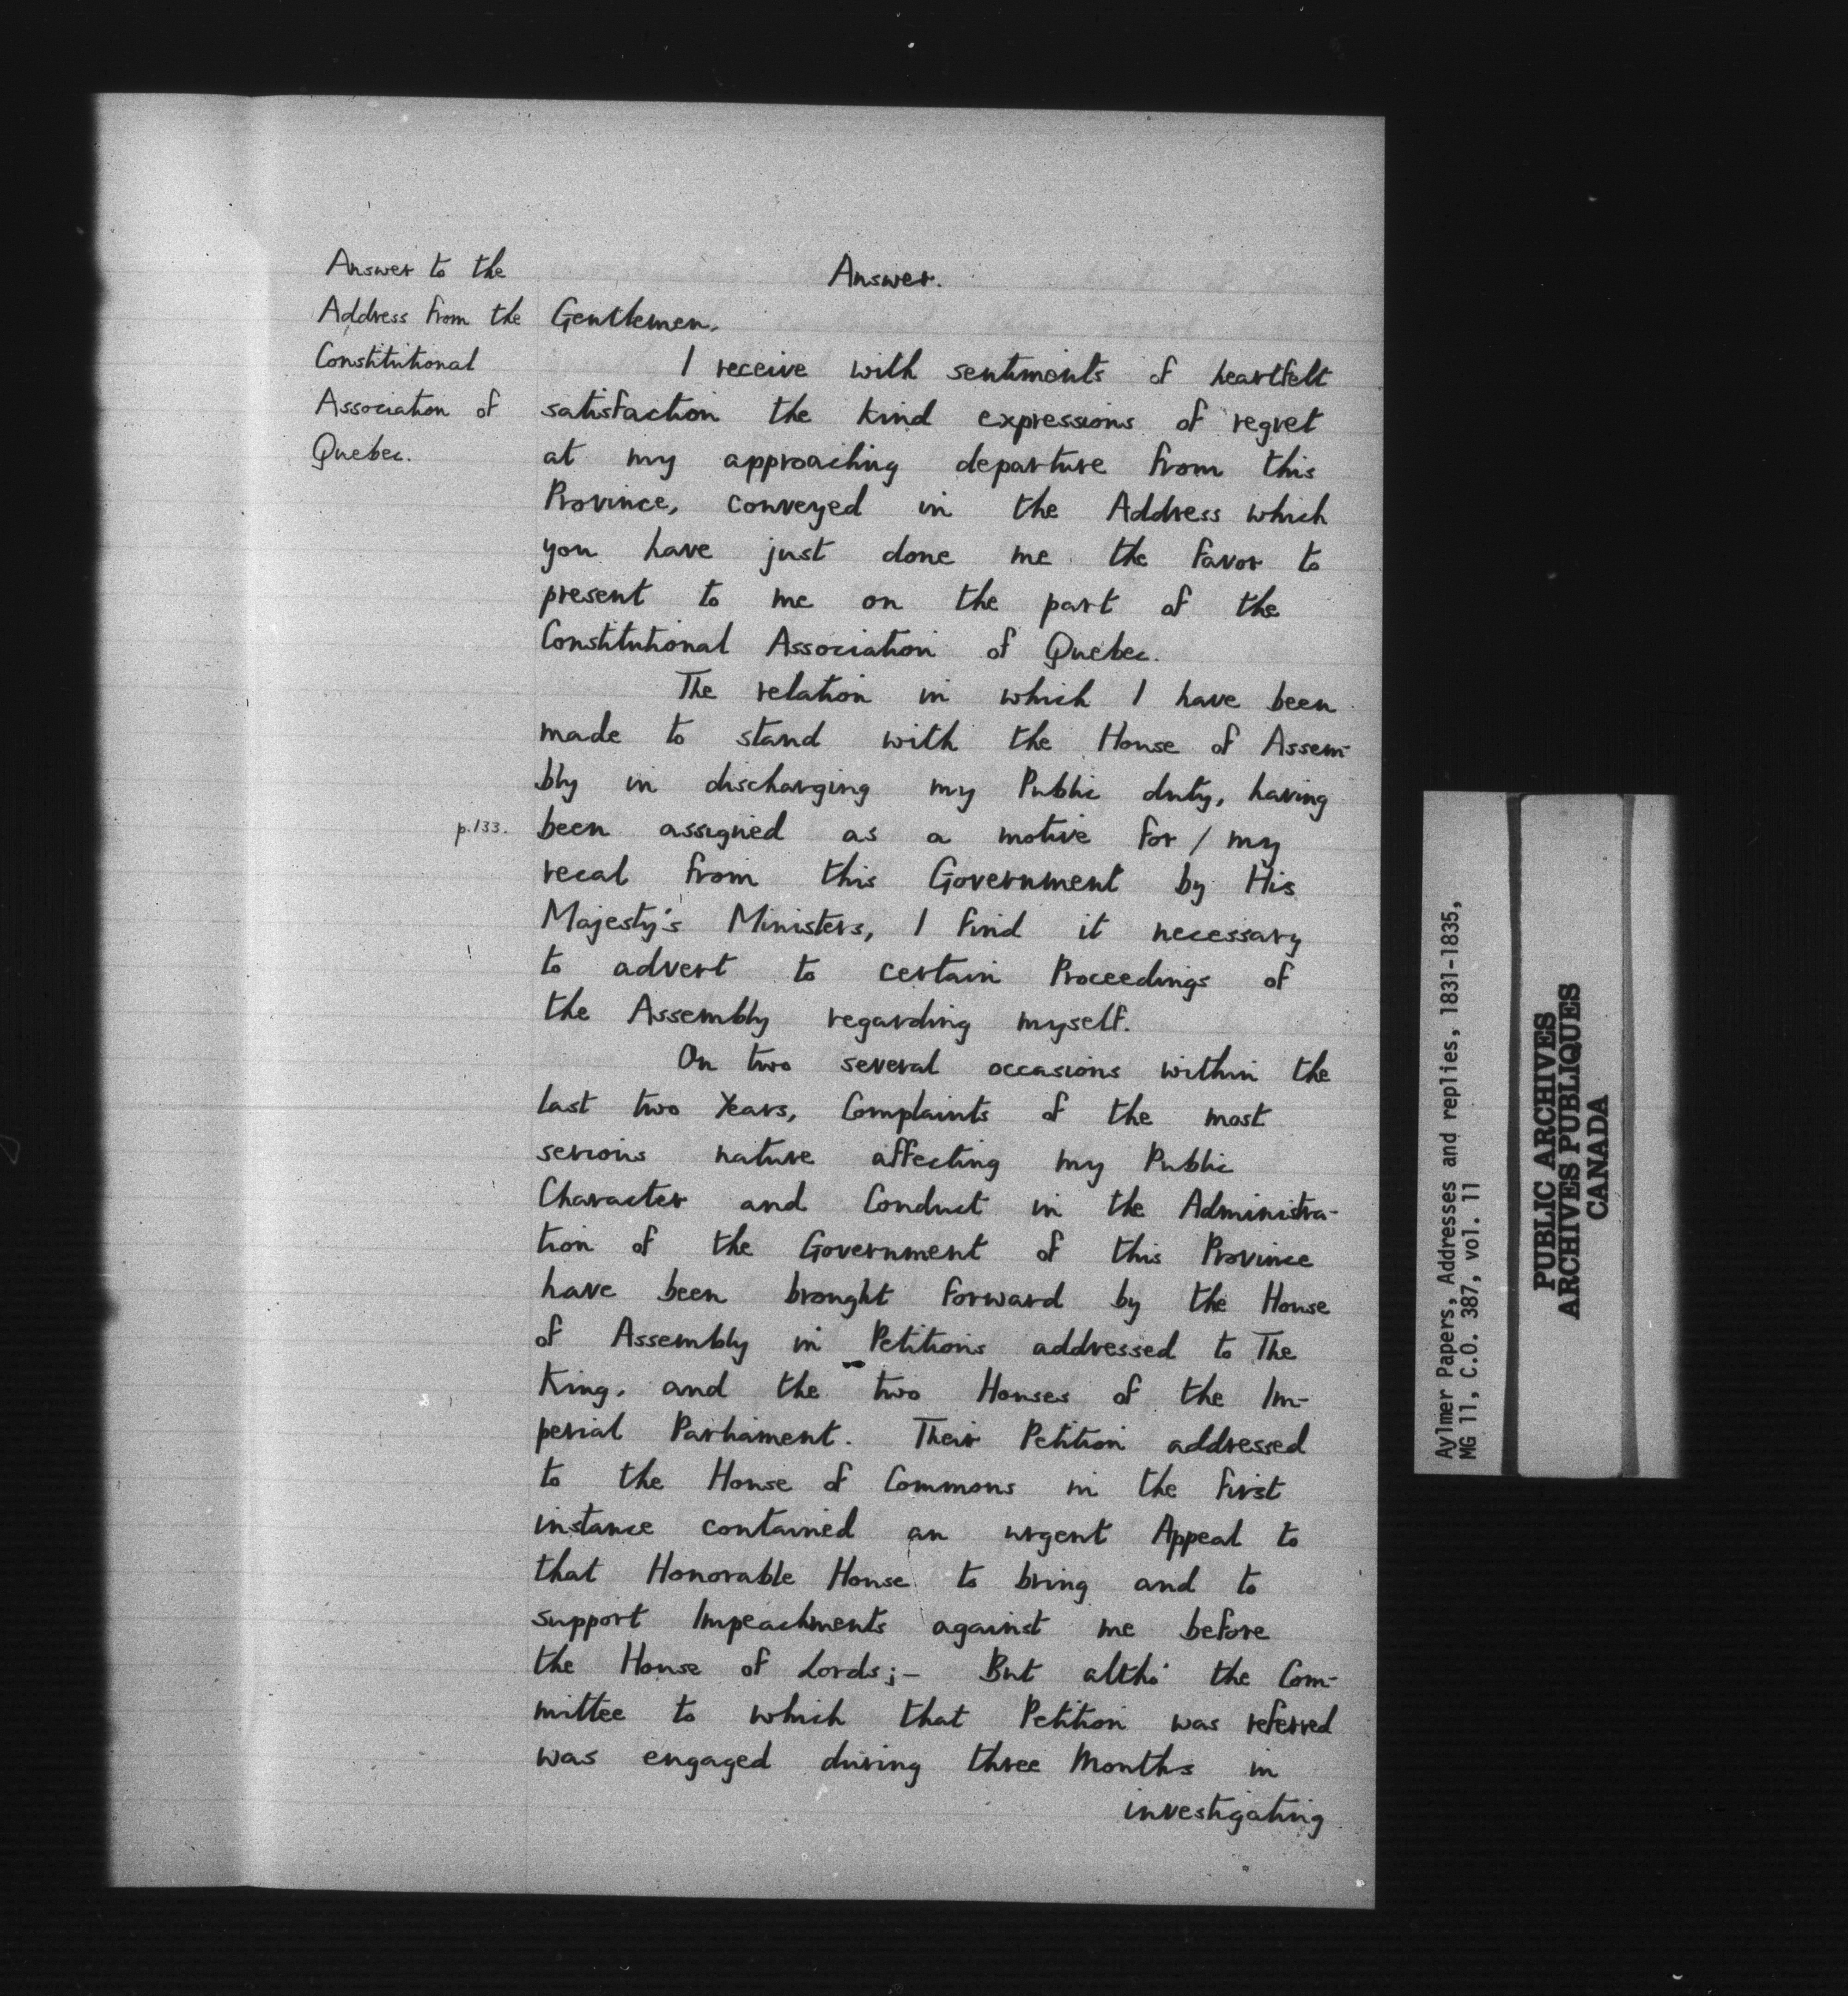 Answer to the
Address from the
Constitutional
Association of
Quebec.
Answer.
Gentlemen,
I receive with sentiments of heartfelt
satisfaction the kind expressions of regret
at my approaching departure from this
Province, conveyed in the Address which
you have just done me the favor to
present to me on the part of the
Constitutional Association of Quebec.
The relation in which I have been
made to stand with the House of Assem-
bly in discharging my Public duty, having
p.133.
been assigned as a motive for / my
recal from this Government by His
Majesty's Ministers, I find it necessary
to advert to certain Proceedings of
the Assembly regarding myself.
On two several occasions within the
last two Years, Complaints of the most
serious nature affecting my Public
Character and Conduct in the Administra-
tion of the Government of this Province
have been brought forward by the House
of Assembly in Petitions addressed to The
King, and the two Houses of the Im-
perial Parliament. Their Petition addressed
to the House of Commons in the first
instance contained an urgent Appeal to
that Honorable House to bring and to
support Impeachments against me before
the House of Lords;- But altho' the Com-
mittee to which that Petition was referred
was engaged during three Months in
investigating
Aylmer Papers, Addresses and replies, 1831-1835,
MG 11, C.O. 387, vol. 11
PUBLIC ARCHIVES
ARCHIVES PUBLIQUES
CANADA